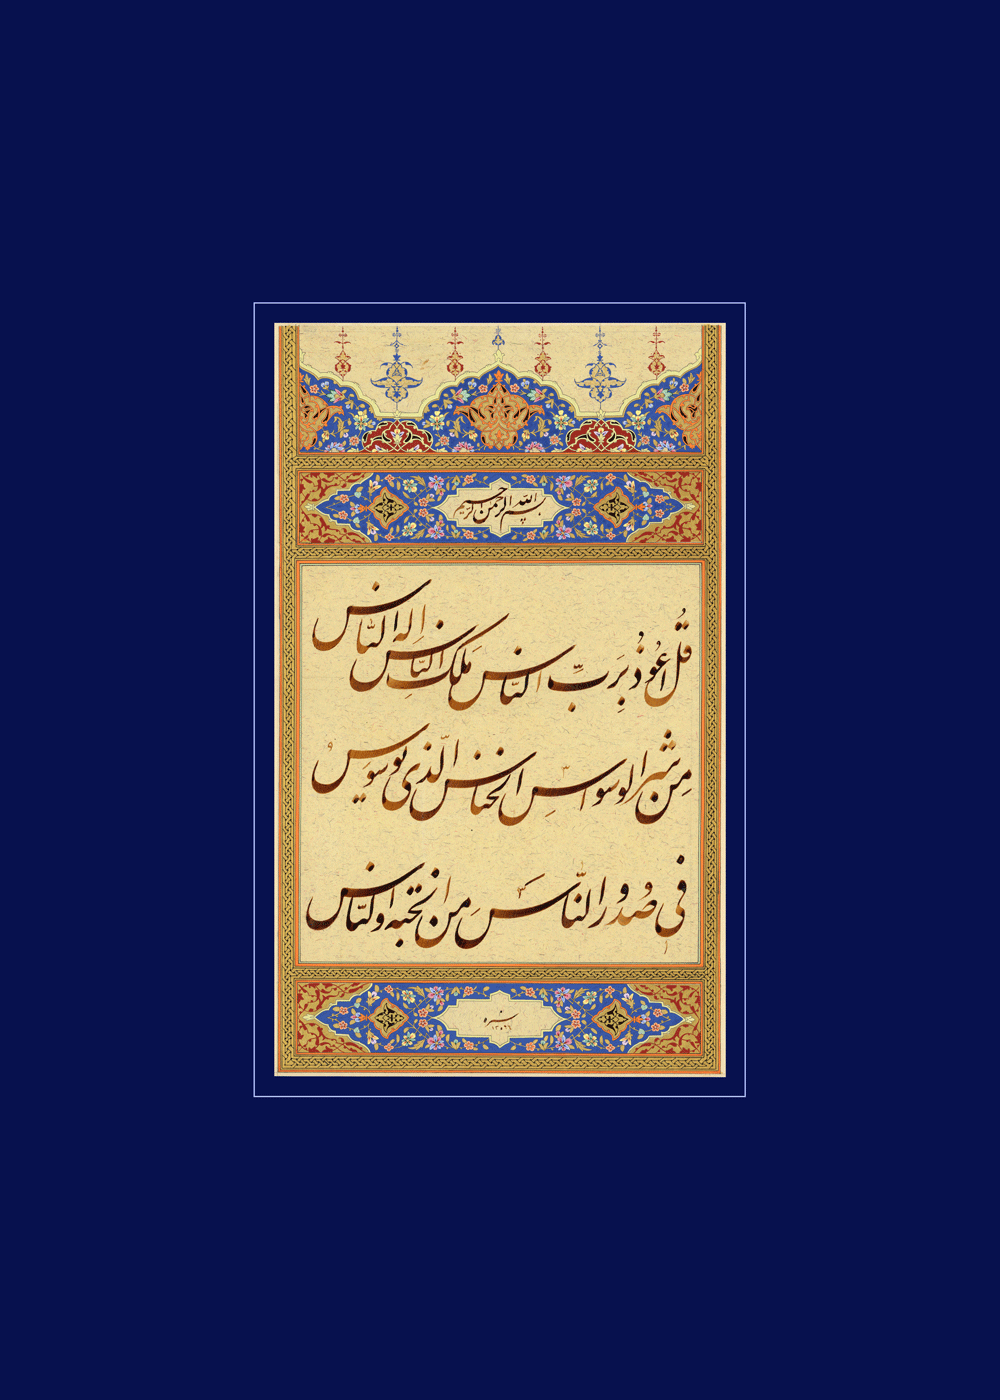 بسم الله الرحمن الرحیم
قُل اعُوذُ بِرَبِّ النّاس مَلِکِ النّاس اِله النّاس
مِن شرِّ الوسواسِ الخنّاس الّذی یوسوِس
فی صُدُورِ النّاسِ مِن الجنّه و النّاس